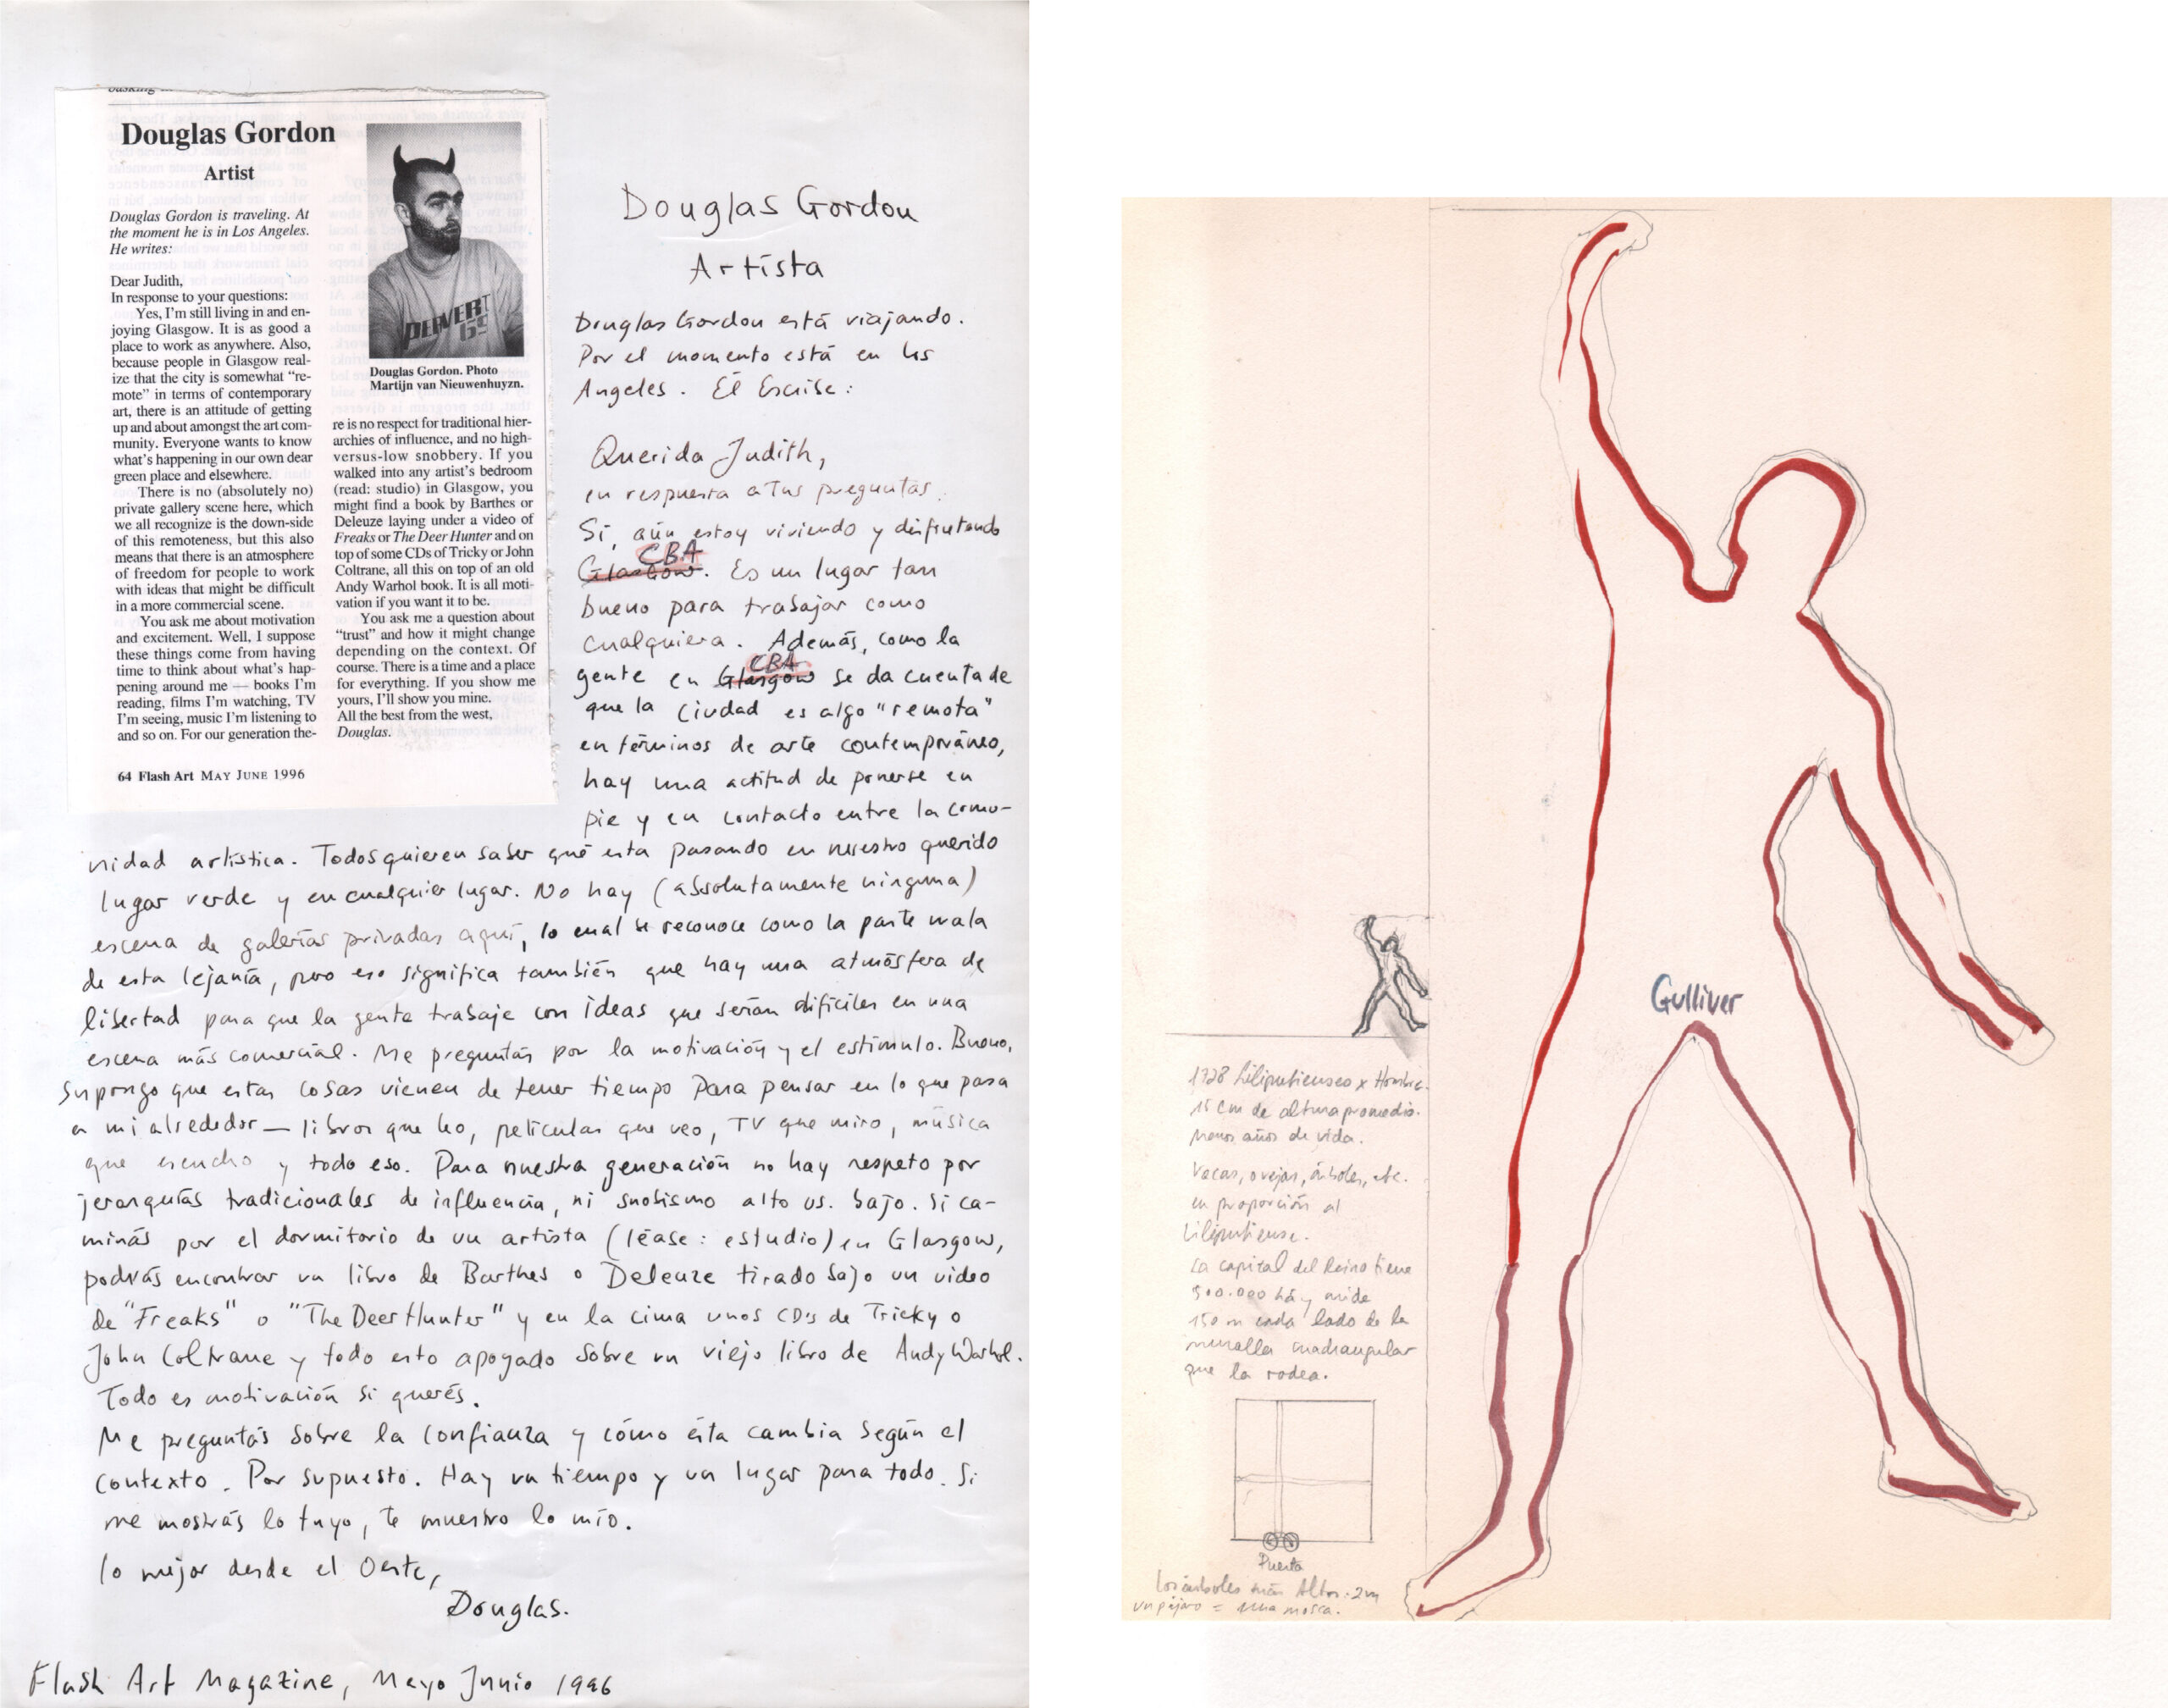 Douglas Gordon
Artist
Douglas Gordon is traveling. At
the moment he is in Los Angeles.
He writes:
Dear Judith,
In response to your questions:
Yes, I'm still living in and en-
joying Glasgow. It is as good a
place to work as anywhere. Also,
because people in Glasgow real-
ize that the city is somewhat "re-
mote" in terms of contemporary
art, there is an attitude of getting
up and about amongst the art com-
munity. Everyone wants to know
what's happening in our own dear
green place and elsewhere.
There is no (absolutely no)
private gallery scene here, which
we all recognize is the down-side
of this remoteness, but this also
means that there is an atmosphere
of freedom for people to work
with ideas that might be difficult
in a more commercial scene.
You ask me about motivation
and excitement. Well, I suppose
these things come from having
time to think about what's hap-
pening around me — books I'm
reading, films I'm watching, TV
I'm seeing, music I'm listening to
and so on. For our generation the-
64 Flash Art MAY JUNE 1996
PERVERT
69
Douglas Gordon. Photo
Martijn van Nieuwenhuyzn.
re is no respect for traditional hier-
archies of influence, and no high-
versus-low snobbery. If you
walked into any artist's bedroom
(read: studio) in Glasgow, you
might find a book by Barthes or
Deleuze laying under a video of
Freaks or The Deer Hunter and on
top of some CDs of Tricky or John
Coltrane, all this on top of an old
Andy Warhol book. It is all moti-
vation if you want it to be.
You ask me a question about
"trust" and how it might change
depending on the context. Of
course. There is a time and a place
for everything. If you show me
yours, I'll show you mine.
All the best from the west,
Douglas.
Douglas Gordon
Artista
Douglas Gordon está viajando.
Por el momento está en los
Angeles. Él Escribe:
Querida Judith,
en respuesta a tus preguntas.
Sí, aún estoy viviendo y disfrutando
CBA
Glasgow. Es un lugar tan
bueno para trabajar como
cualquiera. Además, como la
CBA
gente en Glasgow se da cuenta de
que la ciudad es algo "remota"
en términos de arte contemporáneo,
hay una actitud de ponerse en
pie y en contacto entre la comu-
nidad artística. Todos quieren saber qué esta pasando en nuestro querido
lugar verde y en cualquier lugar. No hay (absolutamente ninguna)
escena de galerías privadas aquí, lo cual se reconoce como la parte mala
de esta lejanía, pero eso significa también que hay una atmósfera de
libertad para que la gente trabaje con ideas que serían difíciles en una
escena más comercial. Me preguntás por la motivación y el estímulo. Bueno,
supongo que estas cosas vienen de tener tiempo para pensar en lo que pasa
a mi alrededor — libros que leo, películas que veo, TV que miro, música
que escucho y todo eso. Para nuestra generación no hay respeto por
jerarquías tradicionales de influencia, ni snobismo alto vs. bajo. Si ca-
minás por el dormitorio de un artista (léase: estudio) en Glasgow,
podrás encontrar un libro de Barthes o Deleuze tirado bajo un video
de "Freaks" o "The Deer Hunter" y en la cima unos CD's de Tricky o
John Coltrane y todo esto apoyado sobre un viejo libro de Andy Warhol.
Todo es motivación si querés.
Me preguntás sobre la confianza y cómo ésta cambia según el
contexto. Por supuesto. Hay un tiempo y un lugar para todo. Si
me mostrás lo tuyo, te muestro lo mío.
Lo mejor desde el Oeste,
Douglas.
Flash Art Magazine, Mayo Junio 1996
Gulliver
1728 Liliputienses x Hombre.
15 cm de altura promedio.
Menos años de vida.
Vacas, ovejas, árboles, etc.
en proporción al
Liliputiense.
La capital del Reino tiene
500.000 há y mide
150 m cada lado de la
muralla cuadrangular
que la rodea.
Puerta
Los árboles más Altos: 2m
un pájaro = una mosca.